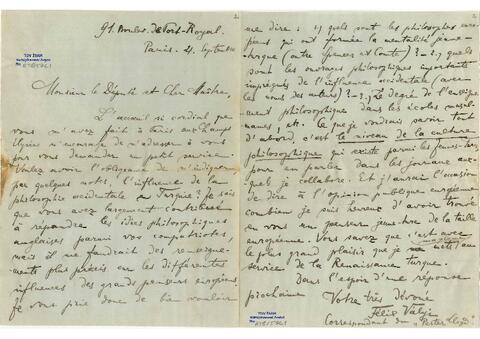 91. Boulev. de Port-Royal
Paris. 4. Septembre
TÜV ZSAM
Monsieur le Député et Cher Maître,
L'accueil si cordial que
vous m'avez fait à Paris aux Champs
Elysées m'encourage de m'adresser à vous
pour vous demander un petit service.
Voulez avoir l'obligeance de m'indiquer
par quelques notes, l'influence de la
philosophie occidentale en Turquie? Je sais
que vous avez largement contribué
à répandre les idées philosophiques
anglaises parmi vos compatriotes,
mais il me faudrait des renseigne-
ments plus précis sur les différentes
influences des grands penseurs européens.
Je vous prie donc de bien vouloir
me dire: 1) quels sont les philosophes euro-
péens qui ont formé la mentalité jeune-
turque (entre Spencer et Comte)? - 2.) quels
sont les ouvrages philosophiques importants
imprégnés de l'influence occidentale (avec
les noms des auteurs)? - 3.) Le degré de l'enseigne-
ment philosophique dans les écoles musul-
manes, etc. Ce que je voudrais savoir tout
d'abord, c'est le niveau de la culture
philosophique qui existe parmi les Jeunes-Turcs
pour en parler dans les journaux aux-
quels je collabore. Et j'aurai l'occasion
de dire à l'opinion publique européenne
combien je suis heureux d'avoir trouvé
en vous un penseur jeune-turc de la taille
européenne. Vous savez que c'est avec
le plus grand plaisir que je me mets au
service de la Renaissance turque.
Dans l'espoir d'une réponse
prochaine
Votre très dévoué
Félix Valyi
Correspondant du "Pester Lloyd"
TÜV ZSAM